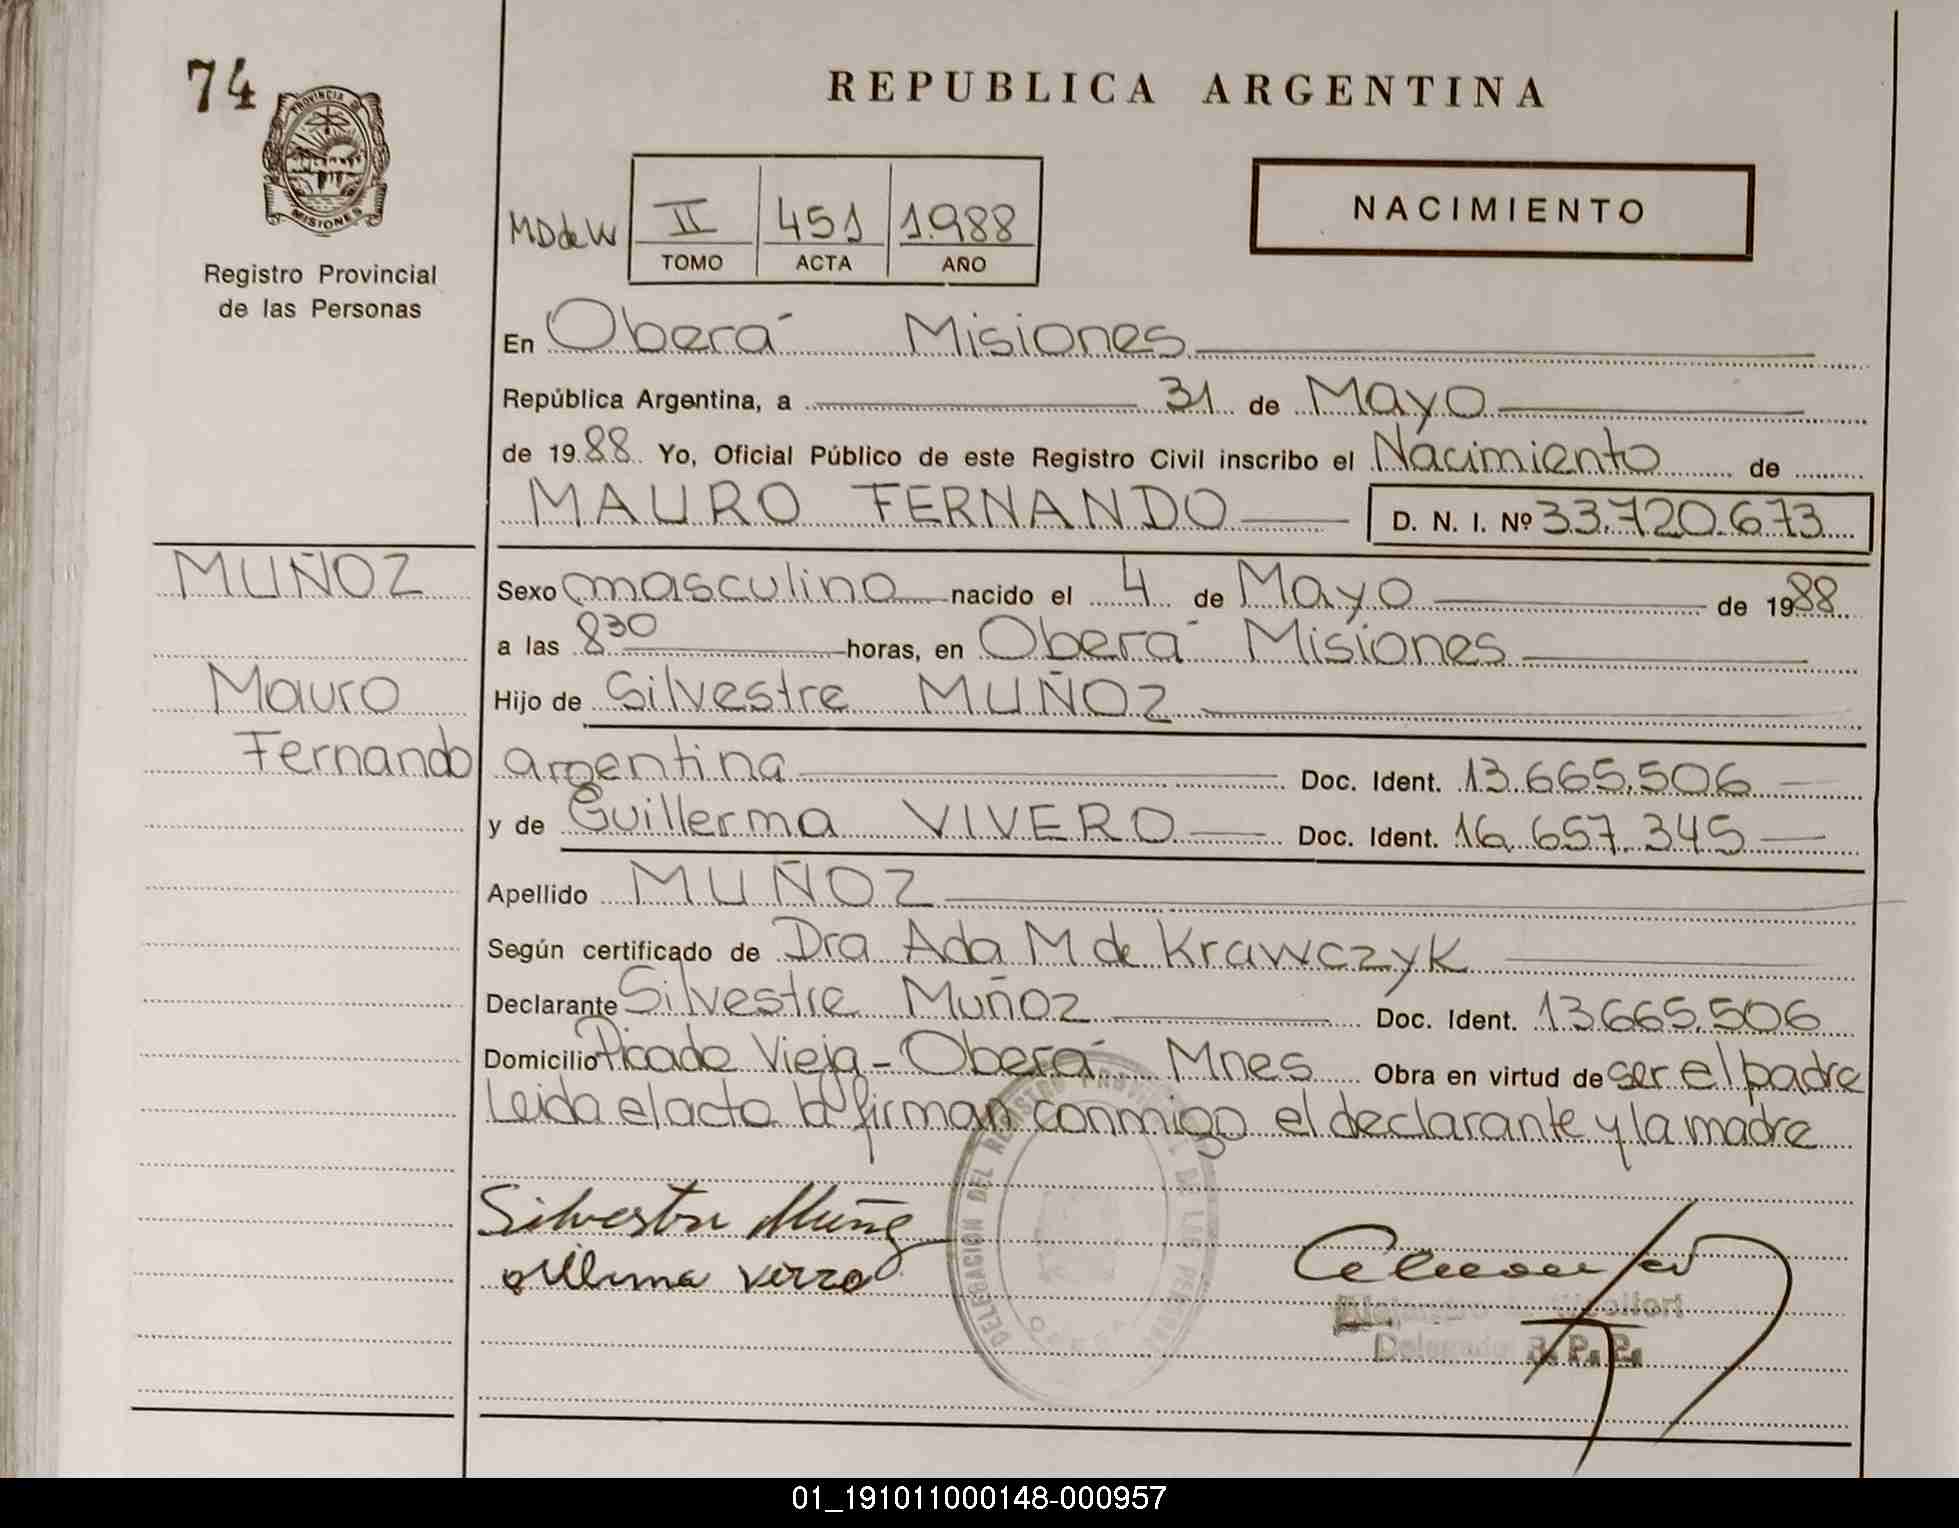 74
REPUBLICA ARGENTINA
PROVINCIA DE
MISIONES
Registro Provincial
de las Personas
MDdeW
II 451 1.988
TOMO ACTA AÑO
NACIMIENTO
En Oberá Misiones
República Argentina, a 31 de Mayo
de 1988 Yo, Oficial Público de este Registro Civil inscribo el Nacimiento de
MAURO FERNANDO D. N. I. Nº 33.720.673
MUÑOZ
Mauro
Fernando
Sexo masculino nacido el 4 de Mayo de 1988
a las 830 horas, en Oberá Misiones
Hijo de Silvestre MUÑOZ
argentina Doc. Ident. 13.665.506
y de Guillerma VIVERO Doc. Ident. 16.657.345
Apellido MUÑOZ
Según certificado de Dra Ada M de Krawczyk
Declarante Silvestre Muñoz Doc. Ident. 13.665.506
Domicilio Picada Vieja - Oberá Mnes Obra en virtud de ser el padre
Leida el acta la firman conmigo el declarante y la madre
Silvestre Muñoz
DELEGACION DEL REGISTRO PROVINCIAL DE LAS PERSONAS
OBERA
Delegado R. P. P.
01_191011000148-000957